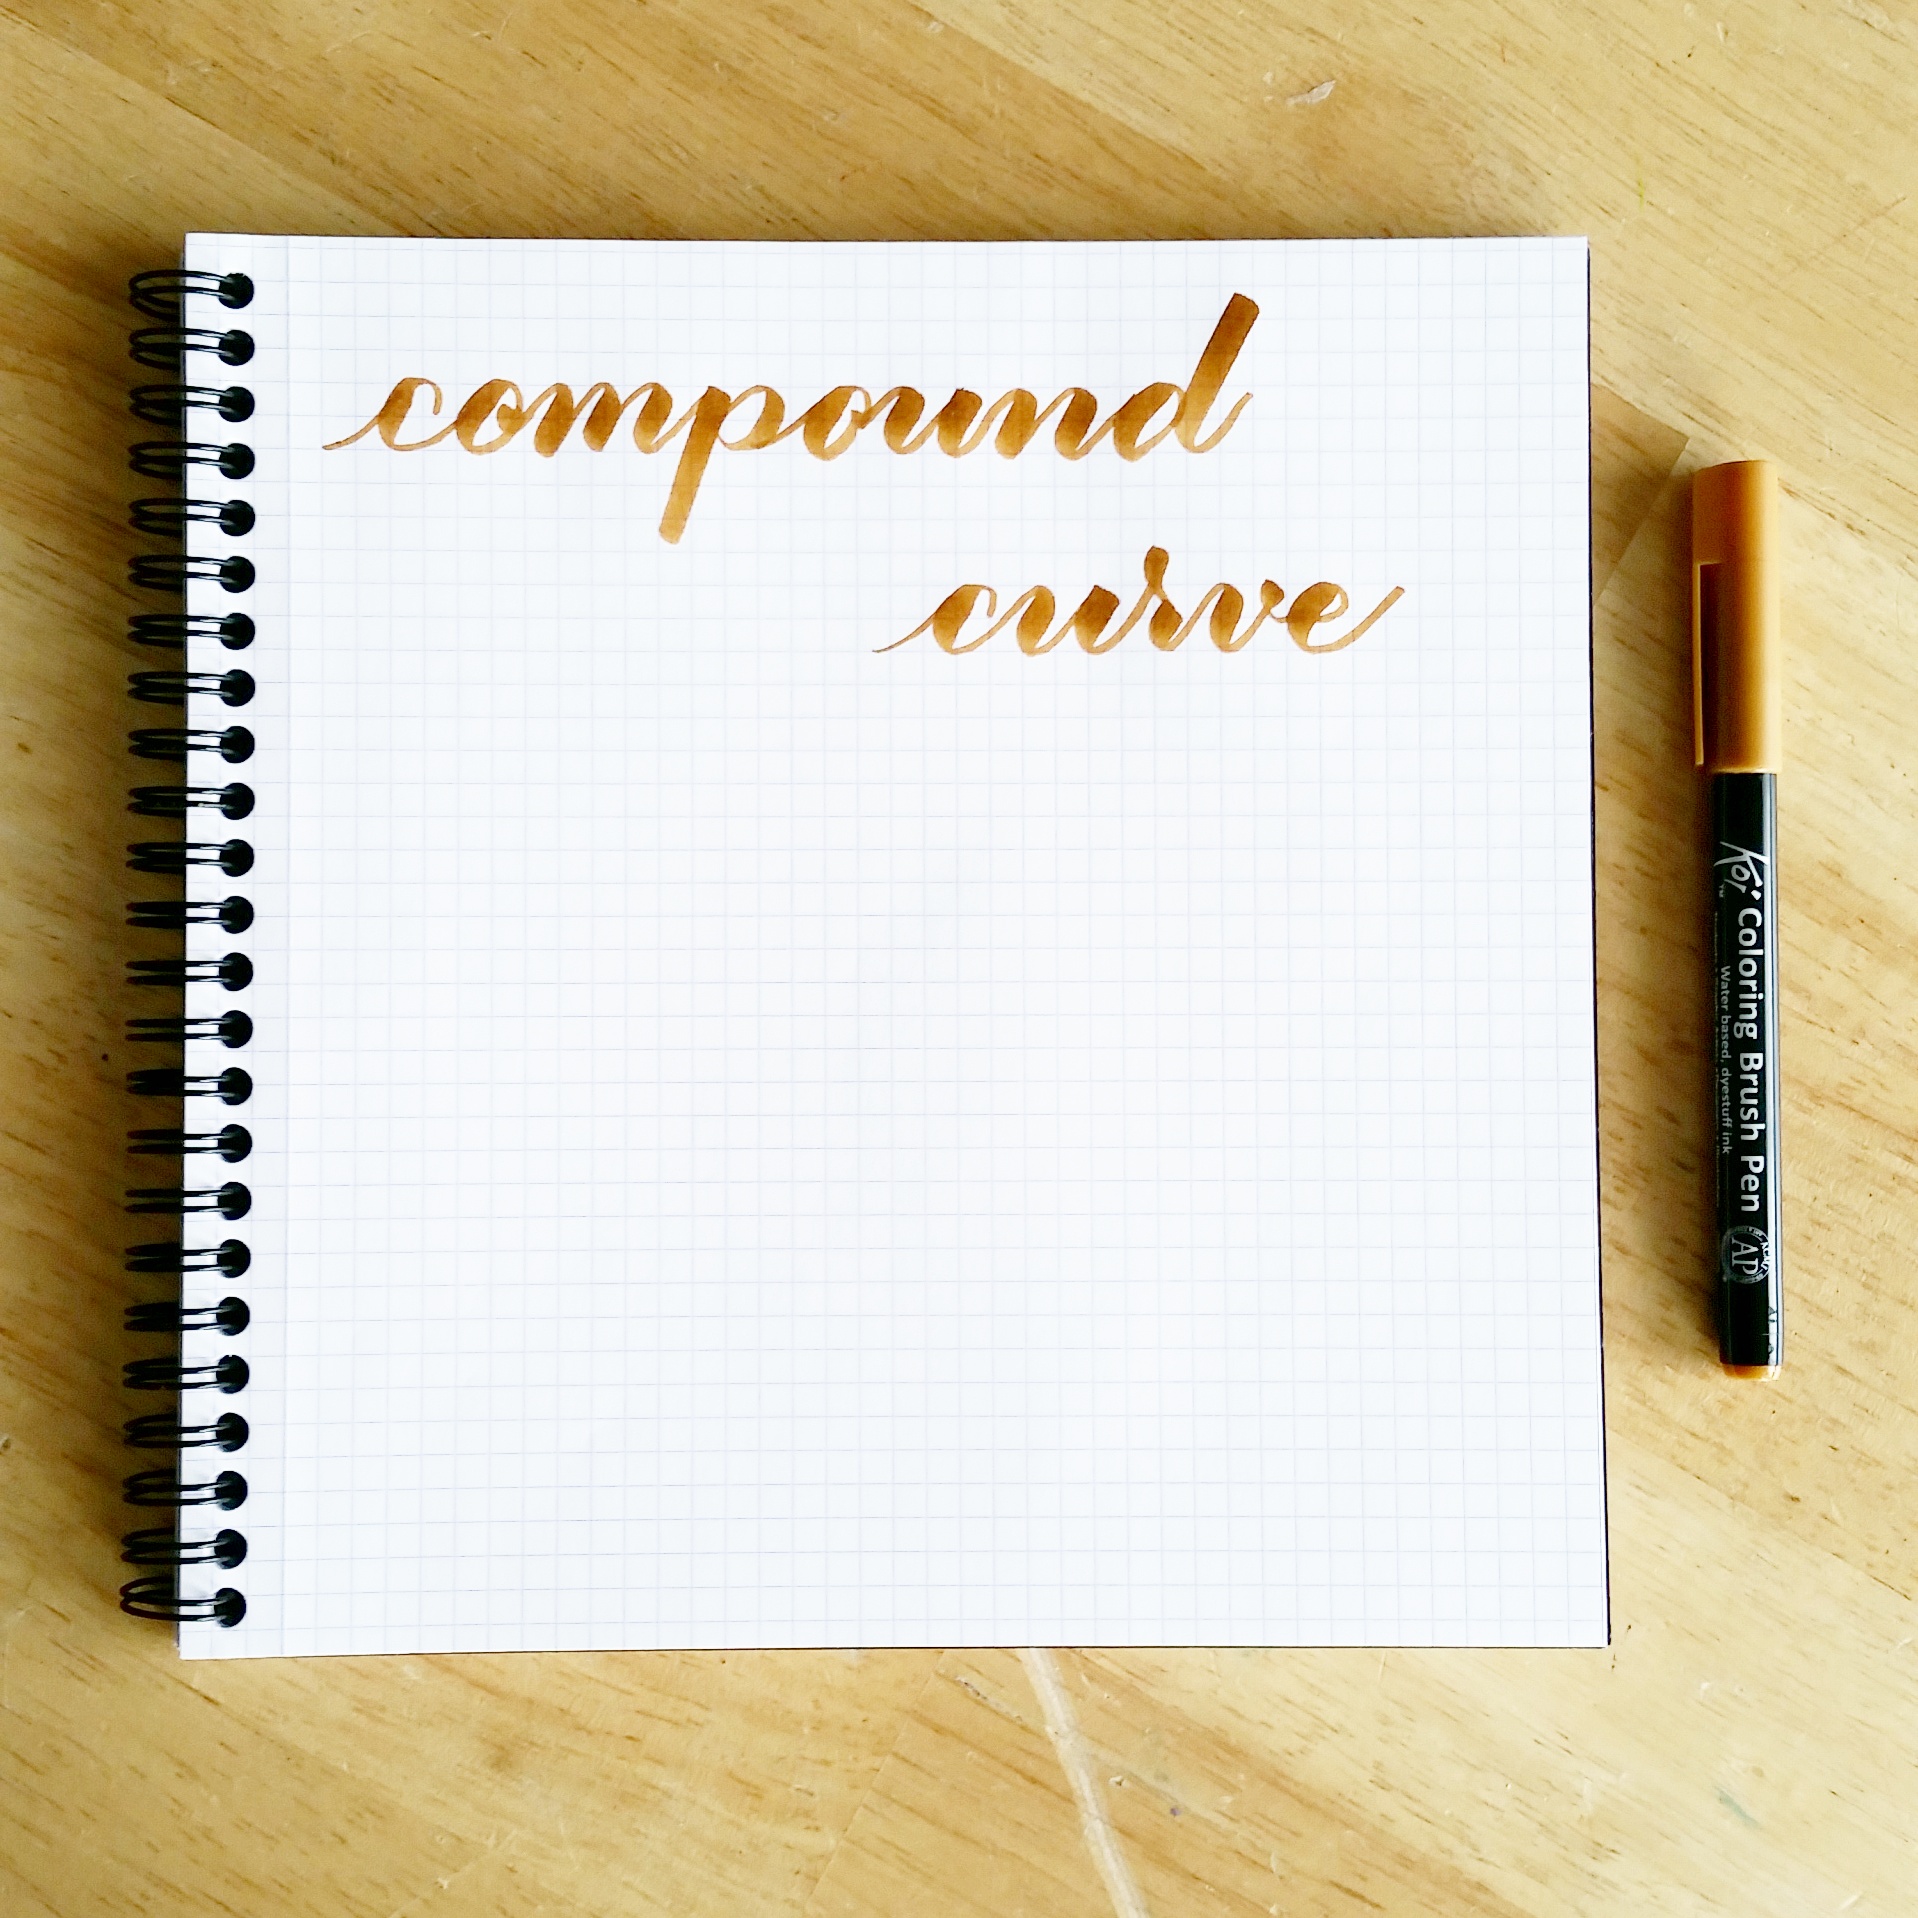 compound
curve
Koi Coloring Brush Pen
TM
Water based, dyestuff ink
AP